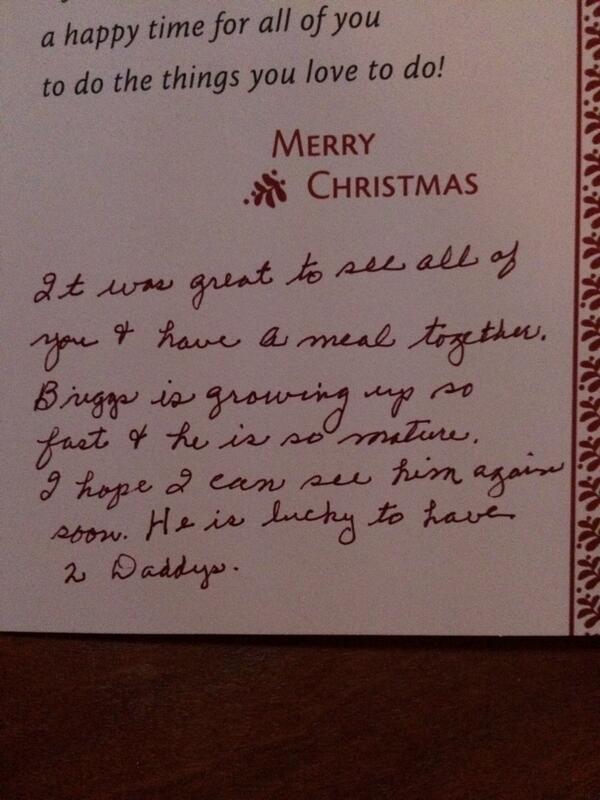 a happy time for all of you
to do the things you love to do!
MERRY
CHRISTMAS
It was great to see all of
you & have a meal together.
Briggs is growing up so
fast & he is so mature.
I hope I can see him again
soon. He is lucky to have
2 Daddys.